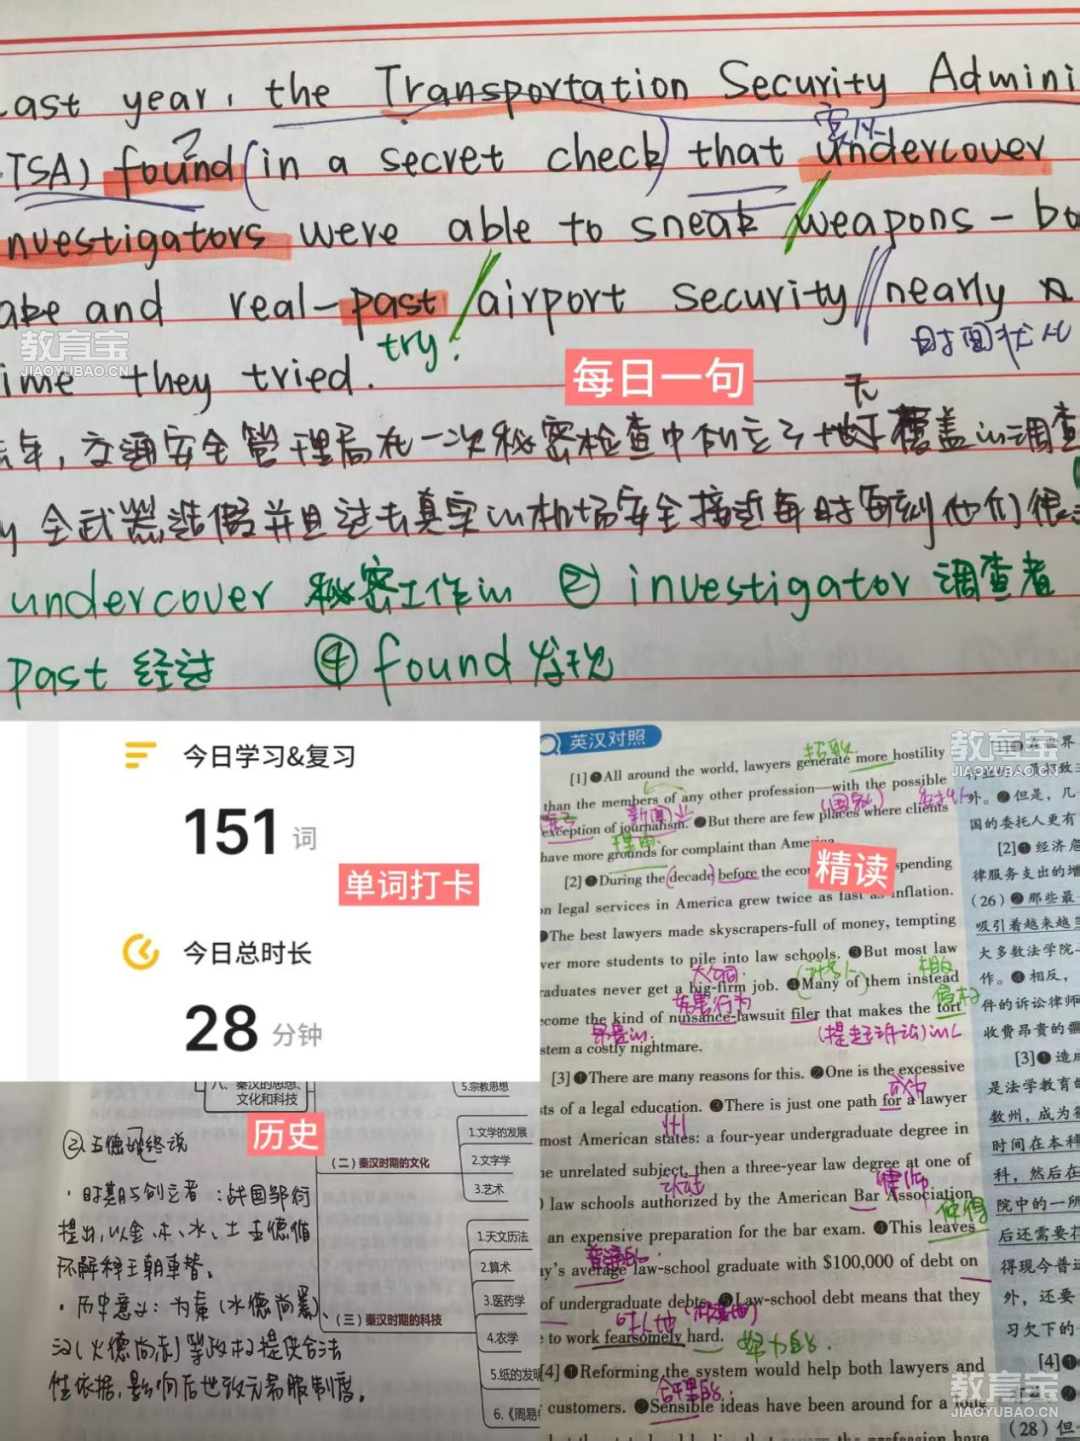 Last year, the Transportation Security Admini
TSA) found (in a secret check) that undercover
nvestigators were able to sneak weapons - bo
ake and real - past airport security nearly
时间状
try.
ime they tried.
每日一句
教育宝
JIAOYUBAO.CN
年,交通安全管理局在一次秘密检查中 覆盖的调查
全武器造假并且过去真实的机场安全接近每时每刻他们很
undercover 秘密工作的 ② investigator 调查者
past 经过 ④ found 发现
今日学习&复习
151 词
单词打卡
今日总时长
28 分钟
英汉对照
教育宝
JIAOYUBAO.CN
[1] ❶All around the world, lawyers generate more hostility
than the members of any other profession—with the possible
新闻业
exception of journalism. ❷But there are few places where clients
理由
have more grounds for complaint than Ame
精读
[2] ❶During the (decade) before the eco spending
on legal services in America grew twice as fast as inflation.
❷The best lawyers made skyscrapers-full of money, tempting
ver more students to pile into law schools. ❸But most law
大公司
相反
raduates never get a big-firm job. ❹Many of them instead
妨害行为
ecome the kind of nuisance-lawsuit filer that makes the tort
昂贵的
(提起诉讼)的人
stem a costly nightmare.
[3] ❶There are many reasons for this. ❷One is the excessive
成为
sts of a legal education. ❸There is just one path for a lawyer
州
most American states: a four-year undergraduate degree in
ne unrelated subject, then a three-year law degree at one of
律师
law schools authorized by the American Bar Association
使得
an expensive preparation for the bar exam. ❹This leaves
普通的
y's average law-school graduate with $100,000 of debt on
of undergraduate debts. ❺Law-school debt means that they
吓人地
to work fearsomely hard.
[4] ❶Reforming the system would help both lawyers and
合理的
customers. ❷Sensible ideas have been around for a long
[1]❶在世界
外。❷但是,几
国的委托人更有
[2]❶经济危
律服务支出的增
(26)❷那些最
吸引着越来越
大多数法学院
作。❹相反,
件的诉讼律师
收费昂贵的
[3]❶造成
是法学教育的
数州,成为律
时间在本科
科,然后在
院中的一所
后还需要在
得现今普通
外,还要
习欠下的
[4]❶
(28)但
教育宝
JIAOYUBAO.CN
历史
八、秦汉的思想、
文化和科技
5.宗教思想
(二)秦汉时期的文化
1.文学的发展
2.文字学
3.艺术
(三)秦汉时期的科技
1.天文历法
2.算术
3.医药学
4.农学
5.纸的发明
6.《周易
②五德终始说
·时期与创立者:战国邹衍
提出,以金、木、水、土五德循
环解释王朝更替。
·历史意义:为秦(水德尚黑)、
汉(火德尚赤)等政权提供合法
性依据,影响后世改元易服制度。